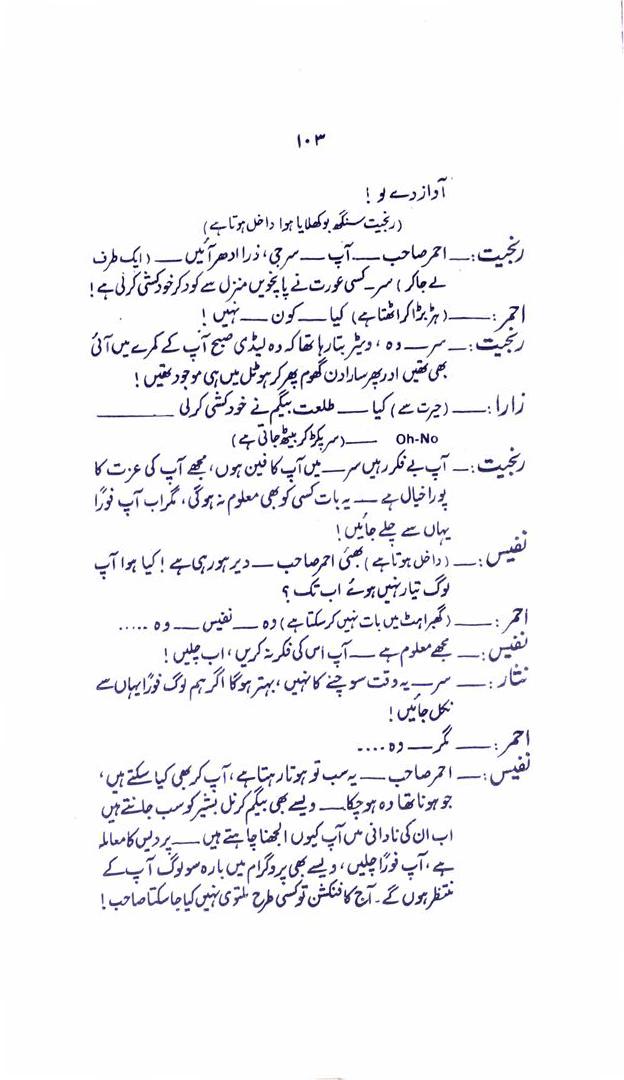 ۱۰۳
آواز دے لو !
(رنجیت سنگھ بوکھلایا ہوا داخل ہوتا ہے)
رنجیت:۔ احمر صاحب — آپ — سر جی، ذرا ادھر آئیں — (ایک طرف
لے جاکر) سر — کسی عورت نے پانچویں منزل سے کود کر خودکشی کرلی ہے!
احمر:۔ — (ہڑبڑا کر اٹھتا ہے) کیا — کون — نہیں !
رنجیت:۔ — سر — وہ، ویٹر بتا رہا تھا کہ وہ لیڈی صبح آپ کے کمرے میں آئی
بھی تھیں اور پھر سارا دن گھوم پھر کر ہوٹل میں ہی موجود تھیں !
زارا:۔ — (حیرت سے) کیا — طلعت بیگم نے خودکشی کرلی —
Oh-No — (سر پکڑ کر بیٹھ جاتی ہے)
رنجیت:۔ — آپ بے فکر رہیں سر — میں آپ کا فین ہوں، مجھے آپ کی عزت کا
پورا خیال ہے — یہ بات کسی کو بھی معلوم نہ ہوگی، مگر اب آپ فوراً
یہاں سے چلے جائیں !
نفیس:۔ — (داخل ہوتا ہے) بھئی احمر صاحب — دیر ہورہی ہے ! کیا ہوا آپ
لوگ تیار نہیں ہوئے اب تک ؟
احمر:۔ — (گھبراہٹ میں بات نہیں کرسکتا ہے) وہ — نفیس — وہ .....
نفیس:۔ — مجھے معلوم ہے — آپ اس کی فکر نہ کریں، اب چلیں !
نثار:۔ — سر — یہ وقت سوچنے کا نہیں، بہتر ہوگا اگر ہم لوگ فوراً یہاں سے
نکل جائیں !
احمر:۔ — مگر — وہ ....
نفیس:۔ — احمر صاحب — یہ سب تو ہوتا رہتا ہے، آپ کر بھی کیا سکتے ہیں،
جو ہونا تھا وہ ہوچکا — ویسے بھی بیگم کرنل بشیر کو سب جانتے ہیں
اب ان کی نادانی میں آپ کیوں الجھنا چاہتے ہیں — پردیس کا معاملہ
ہے، آپ فوراً چلیں، ویسے بھی پروگرام میں بارہ سو لوگ آپ کے
منتظر ہوں گے۔ آج کا فنکشن تو کسی طرح ملتوی نہیں کیا جاسکتا صاحب !